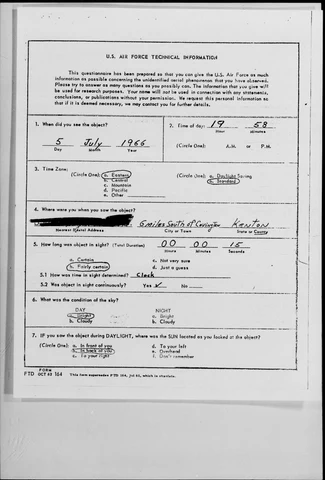 U.S. AIR FORCE TECHNICAL INFORMATION
This questionnaire has been prepared so that you can give the U.S. Air Force as much
information as possible concerning the unidentified aerial phenomenon that you have observed.
Please try to answer as many questions as you possibly can. The information you give will
be used for research purposes. Your name will not be used in connection with any statements,
conclusions, or publications without your permission. We request this personal information so
that if it is deemed necessary, we may contact you for further details.
1. When did you see the object?
5 July 1966
Day Month Year
2. Time of day: 19 58
Hour Minutes
(Circle One): A.M. or P.M.
3. Time Zone:
(Circle One): a. Eastern
b. Central
c. Mountain
d. Pacific
e. Other
(Circle One): a. Daylight Saving
b. Standard
4. Where were you when you saw the object?
6 miles South of Covington Kenton
Nearest Postal Address City or Town State or County
5. How long was object in sight? (Total Duration) 00 00 15
Hours Minutes Seconds
a. Certain c. Not very sure
b. Fairly certain d. Just a guess
5.1 How was time in sight determined? Clock
5.2 Was object in sight continuously? Yes ✓ No
6. What was the condition of the sky?
DAY NIGHT
a. Bright a. Bright
b. Cloudy b. Cloudy
7. IF you saw the object during DAYLIGHT, where was the SUN located as you looked at the object?
(Circle One): a. In front of you d. To your left
b. In back of you e. Overhead
c. To your right f. Don't remember
FORM
FTD OCT 62 164 This form supersedes FTD 164,